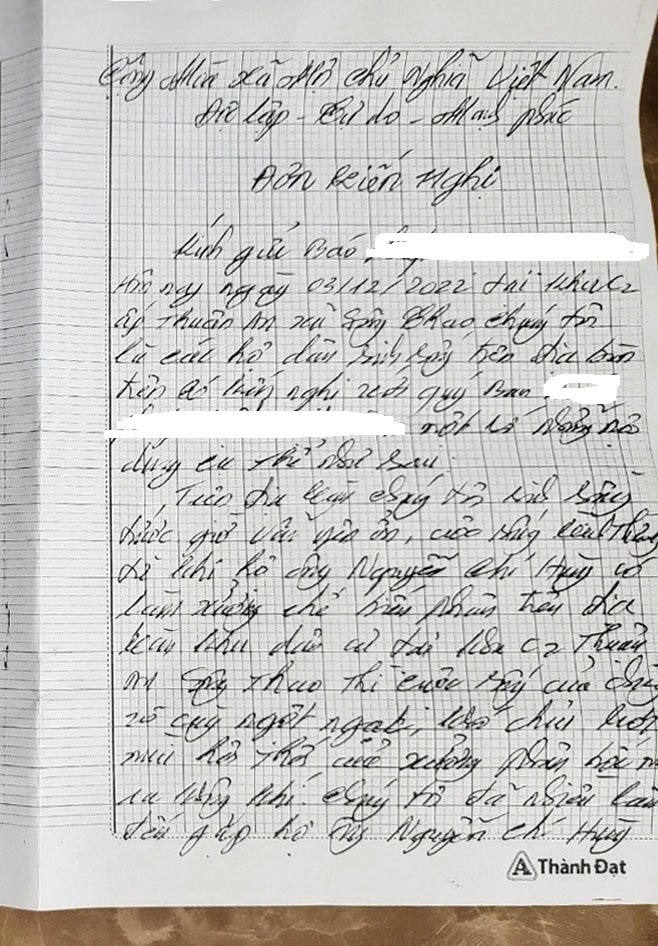 Cộng Hòa Xã Hội Chủ Nghĩa Việt Nam.
Độc lập - Tự do - Hạnh phúc
Đơn Kiến Nghị
Kính gửi Báo
Hôm nay ngày 03/12/2022 tại khu C2
ấp Thuận An xã Sông Thao chúng tôi
là các hộ dân sinh sống trên địa bàn
trên có kiến nghị với quý Ban
một số những nội
dung cụ thể như sau:
Trên địa bàn chúng tôi sinh sống
trước giờ vẫn yên ổn, cuộc sống bình thường
từ khi hộ ông Nguyễn Chí Hùng có
làm xưởng chế biến phân trên địa
bàn khu dân cư tại khu C2 Thuận
An Sông Thao thì cuộc sống của chúng
vô cùng ngột ngạt, khó chịu bởi
mùi hôi thối của xưởng phân bốc m
ra không khí. Chúng tôi đã nhiều lần
đến gặp hộ ông Nguyễn Chí Hùng
A Thành Đạt